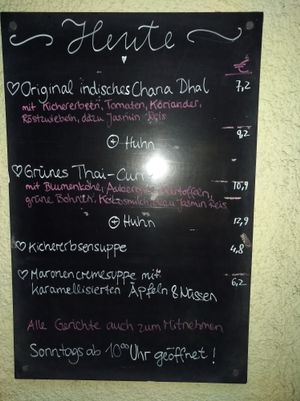 Heute
€
♡ Original indisches Chana Dhal 7,2
mit Kichererbsen, Tomaten, Koriander,
Röstzwiebeln, dazu Jasmin Reis
⊕ Huhn 9,2
♡ Grünes Thai-Curry 10,9
mit Blumenkohl, Kartoffeln,
grüne Bohnen, Kokosmilch, dazu Jasmin Reis
⊕ Huhn 12,9
♡ Kichererbsensuppe 4,8
♡ Maronencremesuppe mit 6,2
karamellisierten Äpfeln & Nüssen
Alle Gerichte auch zum Mitnehmen
Sonntags ab 10⁰⁰ Uhr geöffnet!